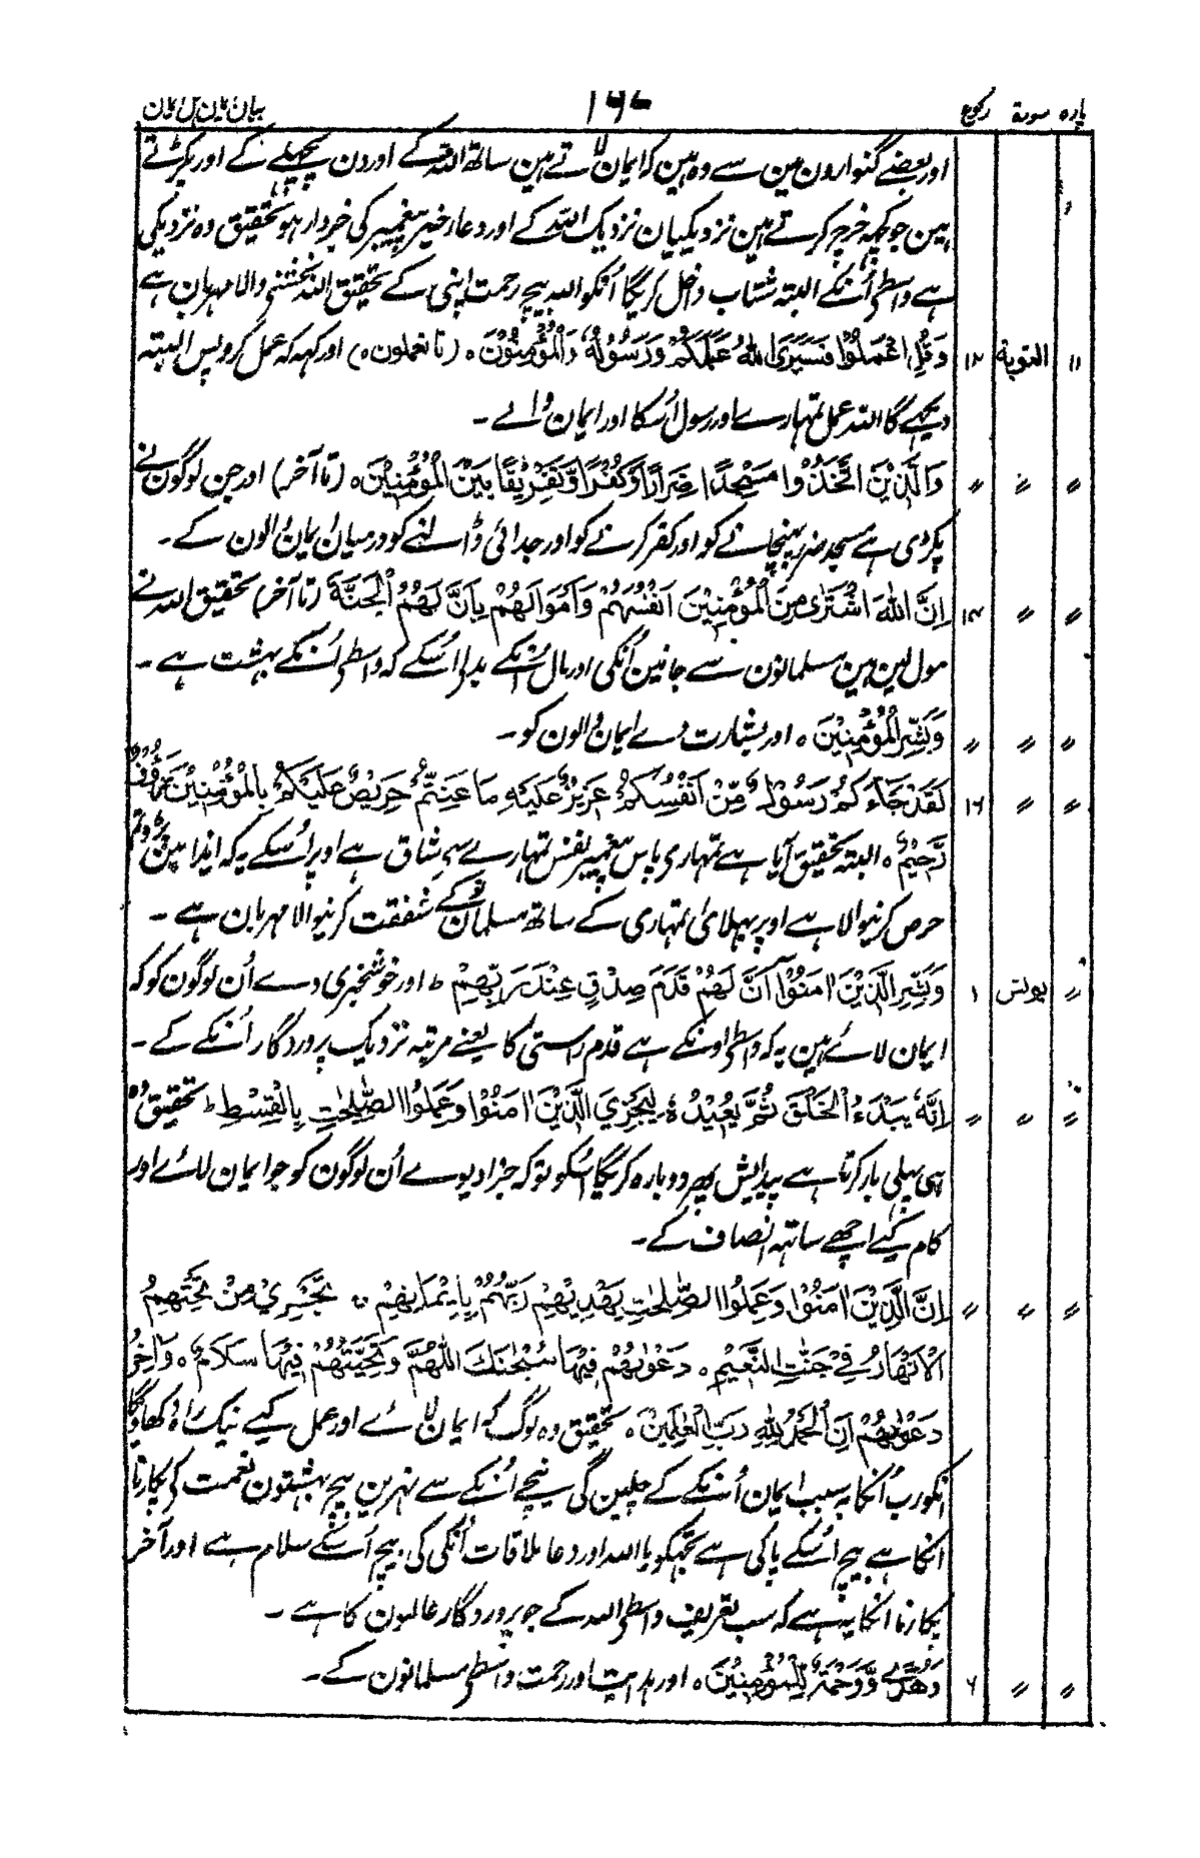 پارہ سورۃ رکوع ۱۹۷
اور بعضے گنوارون مین سے وہ ہین کہ ایمان لاتے ہین ساتھ اللہ کے اور دن پچھلے کے اور پکڑتے
ہین جو کچھ خرچ کرتے ہین نزدیکیان نزدیک اللہ کے اور دعاء خیر پیغمبر کی خبردار ہو تحقیق وہ نزدیکی
ہے واسطے اُنکے البتہ شتاب داخل کریگا اُنکو اللہ بیچ رحمت اپنی کے تحقیق اللہ بخشنے والا مہربان ہے
۱۱ التوبة ۱۳ وَقُلِ اعْمَلُوْا فَسَيَرَى اللّٰهُ عَمَلَكُمْ وَرَسُوْلُهٗ وَالْمُؤْمِنُوْنَ ٥ (تا تعملون ٥) اور کہہ کہ عمل کرو پس البتہ
دیکھے گا اللہ عمل تمہارے اور رسول اُسکا اور ایمان والے ۔
〃 〃 〃 وَالَّذِيْنَ اتَّخَذُوْا مَسْجِدًا ضِرَارًا وَّكُفْرًا وَّتَفْرِيْقًا بَيْنَ الْمُؤْمِنِيْنَ ٥ (تا آخر) اور جن لوگون نے
پکڑی ہے مسجد ضرر پہنچانے کو اور کفر کرنے کو اور جدائی ڈالنے کو درمیان ایمان والون کے ۔
〃 〃 ۱۴ اِنَّ اللّٰهَ اشْتَرٰى مِنَ الْمُؤْمِنِيْنَ اَنْفُسَهُمْ وَاَمْوَالَهُمْ بِاَنَّ لَهُمُ الْجَنَّةَ (تا آخر) تحقیق اللہ نے
مول لین ہین مسلمانون سے جانین اُنکی اور مال اُنکے بدلا اُسکے کہ واسطے اُنکے بہشت ہے ۔
〃 〃 〃 وَبَشِّرِ الْمُؤْمِنِيْنَ ٥ اور بشارت دے ایمان والون کو ۔
〃 〃 ۱۶ لَقَدْ جَاءَكُمْ رَسُوْلٌ مِّنْ اَنْفُسِكُمْ عَزِيْزٌ عَلَيْهِ مَا عَنِتُّمْ حَرِيْصٌ عَلَيْكُمْ بِالْمُؤْمِنِيْنَ رَءُوْفٌ
رَّحِيْمٌ ٥ البتہ تحقیق آیا ہے تمہاری پاس پیغمبر نفس تمہارے سے شاق ہے اوپر اُسکے یہ کہ ایذا مین
حرص کرنیوالا ہے اوپر بھلائی تمہاری کے ساتھ مسلمانون کے شفقت کرنیوالا مہربان ہے ۔
〃 یونس ۱ وَبَشِّرِ الَّذِيْنَ اٰمَنُوْا اَنَّ لَهُمْ قَدَمَ صِدْقٍ عِنْدَ رَبِّهِمْ ط اور خوشخبری دے اُن لوگون کو کہ
ایمان لائے ہین یہ کہ واسطے اونکے ہے قدم راستی کا یعنے مرتبہ نزدیک پروردگار اُنکے کے ۔
〃 〃 〃 اِنَّهٗ يَبْدَءُ الْخَلْقَ ثُمَّ يُعِيْدُهٗ لِيَجْزِيَ الَّذِيْنَ اٰمَنُوْا وَعَمِلُوا الصّٰلِحٰتِ بِالْقِسْطِ ط تحقیق وہ
ہی پہلی بار کرتا ہے پیدایش پھر دوبارہ کریگا اُسکو تو کہ جزا دیوے اُن لوگون کو جو ایمان لائے اور
کام کیے اچھے ساتھ انصاف کے ۔
〃 〃 〃 اِنَّ الَّذِيْنَ اٰمَنُوْا وَعَمِلُوا الصّٰلِحٰتِ يَهْدِيْهِمْ رَبُّهُمْ بِاِيْمَانِهِمْ ٥ تَجْرِيْ مِنْ تَحْتِهِمُ
الْاَنْهَارُ فِيْ جَنّٰتِ النَّعِيْمِ ٥ دَعْوٰىهُمْ فِيْهَا سُبْحٰنَكَ اللّٰهُمَّ وَتَحِيَّتُهُمْ فِيْهَا سَلَامٌ ٥ وَاٰخِرُ
دَعْوٰىهُمْ اَنِ الْحَمْدُ لِلّٰهِ رَبِّ الْعٰلَمِيْنَ ٥ تحقیق وہ لوگ کہ ایمان لائے اور عمل کیے نیک راہ دکھاویگا
انکو رب اُنکا بہ سبب ایمان اُنکے کے چلین گی نیچے اُنکے سے نہرین بیچ بہشتون نعمت کے پکارنا
انکا ہے بیچ اُسکے پاکی ہے تجھکو یا اللہ اور دعا ملاقات اُنکی کی بیچ اُسکے سلام ہے اور آخر
پکارنا انکا یہ ہے کہ سب تعریف واسطے اللہ کے جو پروردگار عالمون کا ہے ۔
〃 〃 ۶ وَهُدًى وَّرَحْمَةٌ لِّلْمُؤْمِنِيْنَ ٥ اور ہدایت اور رحمت واسطے مسلمانون کے ۔